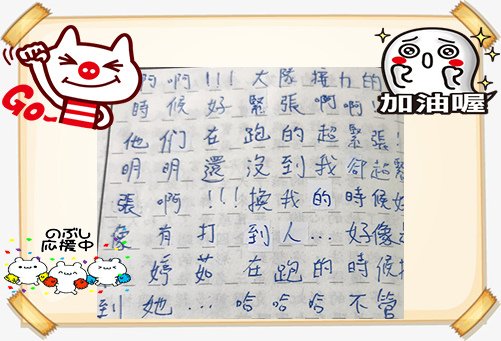 Go~
加油喔
啊!!! 大隊接力的
時候好緊張啊啊
他們在跑的超緊張!
明明還沒到我卻超
張啊!!!換我的時候
像有打到人...好像
のぶし
応援中
婷茹在跑的時候
到她...哈哈哈不管